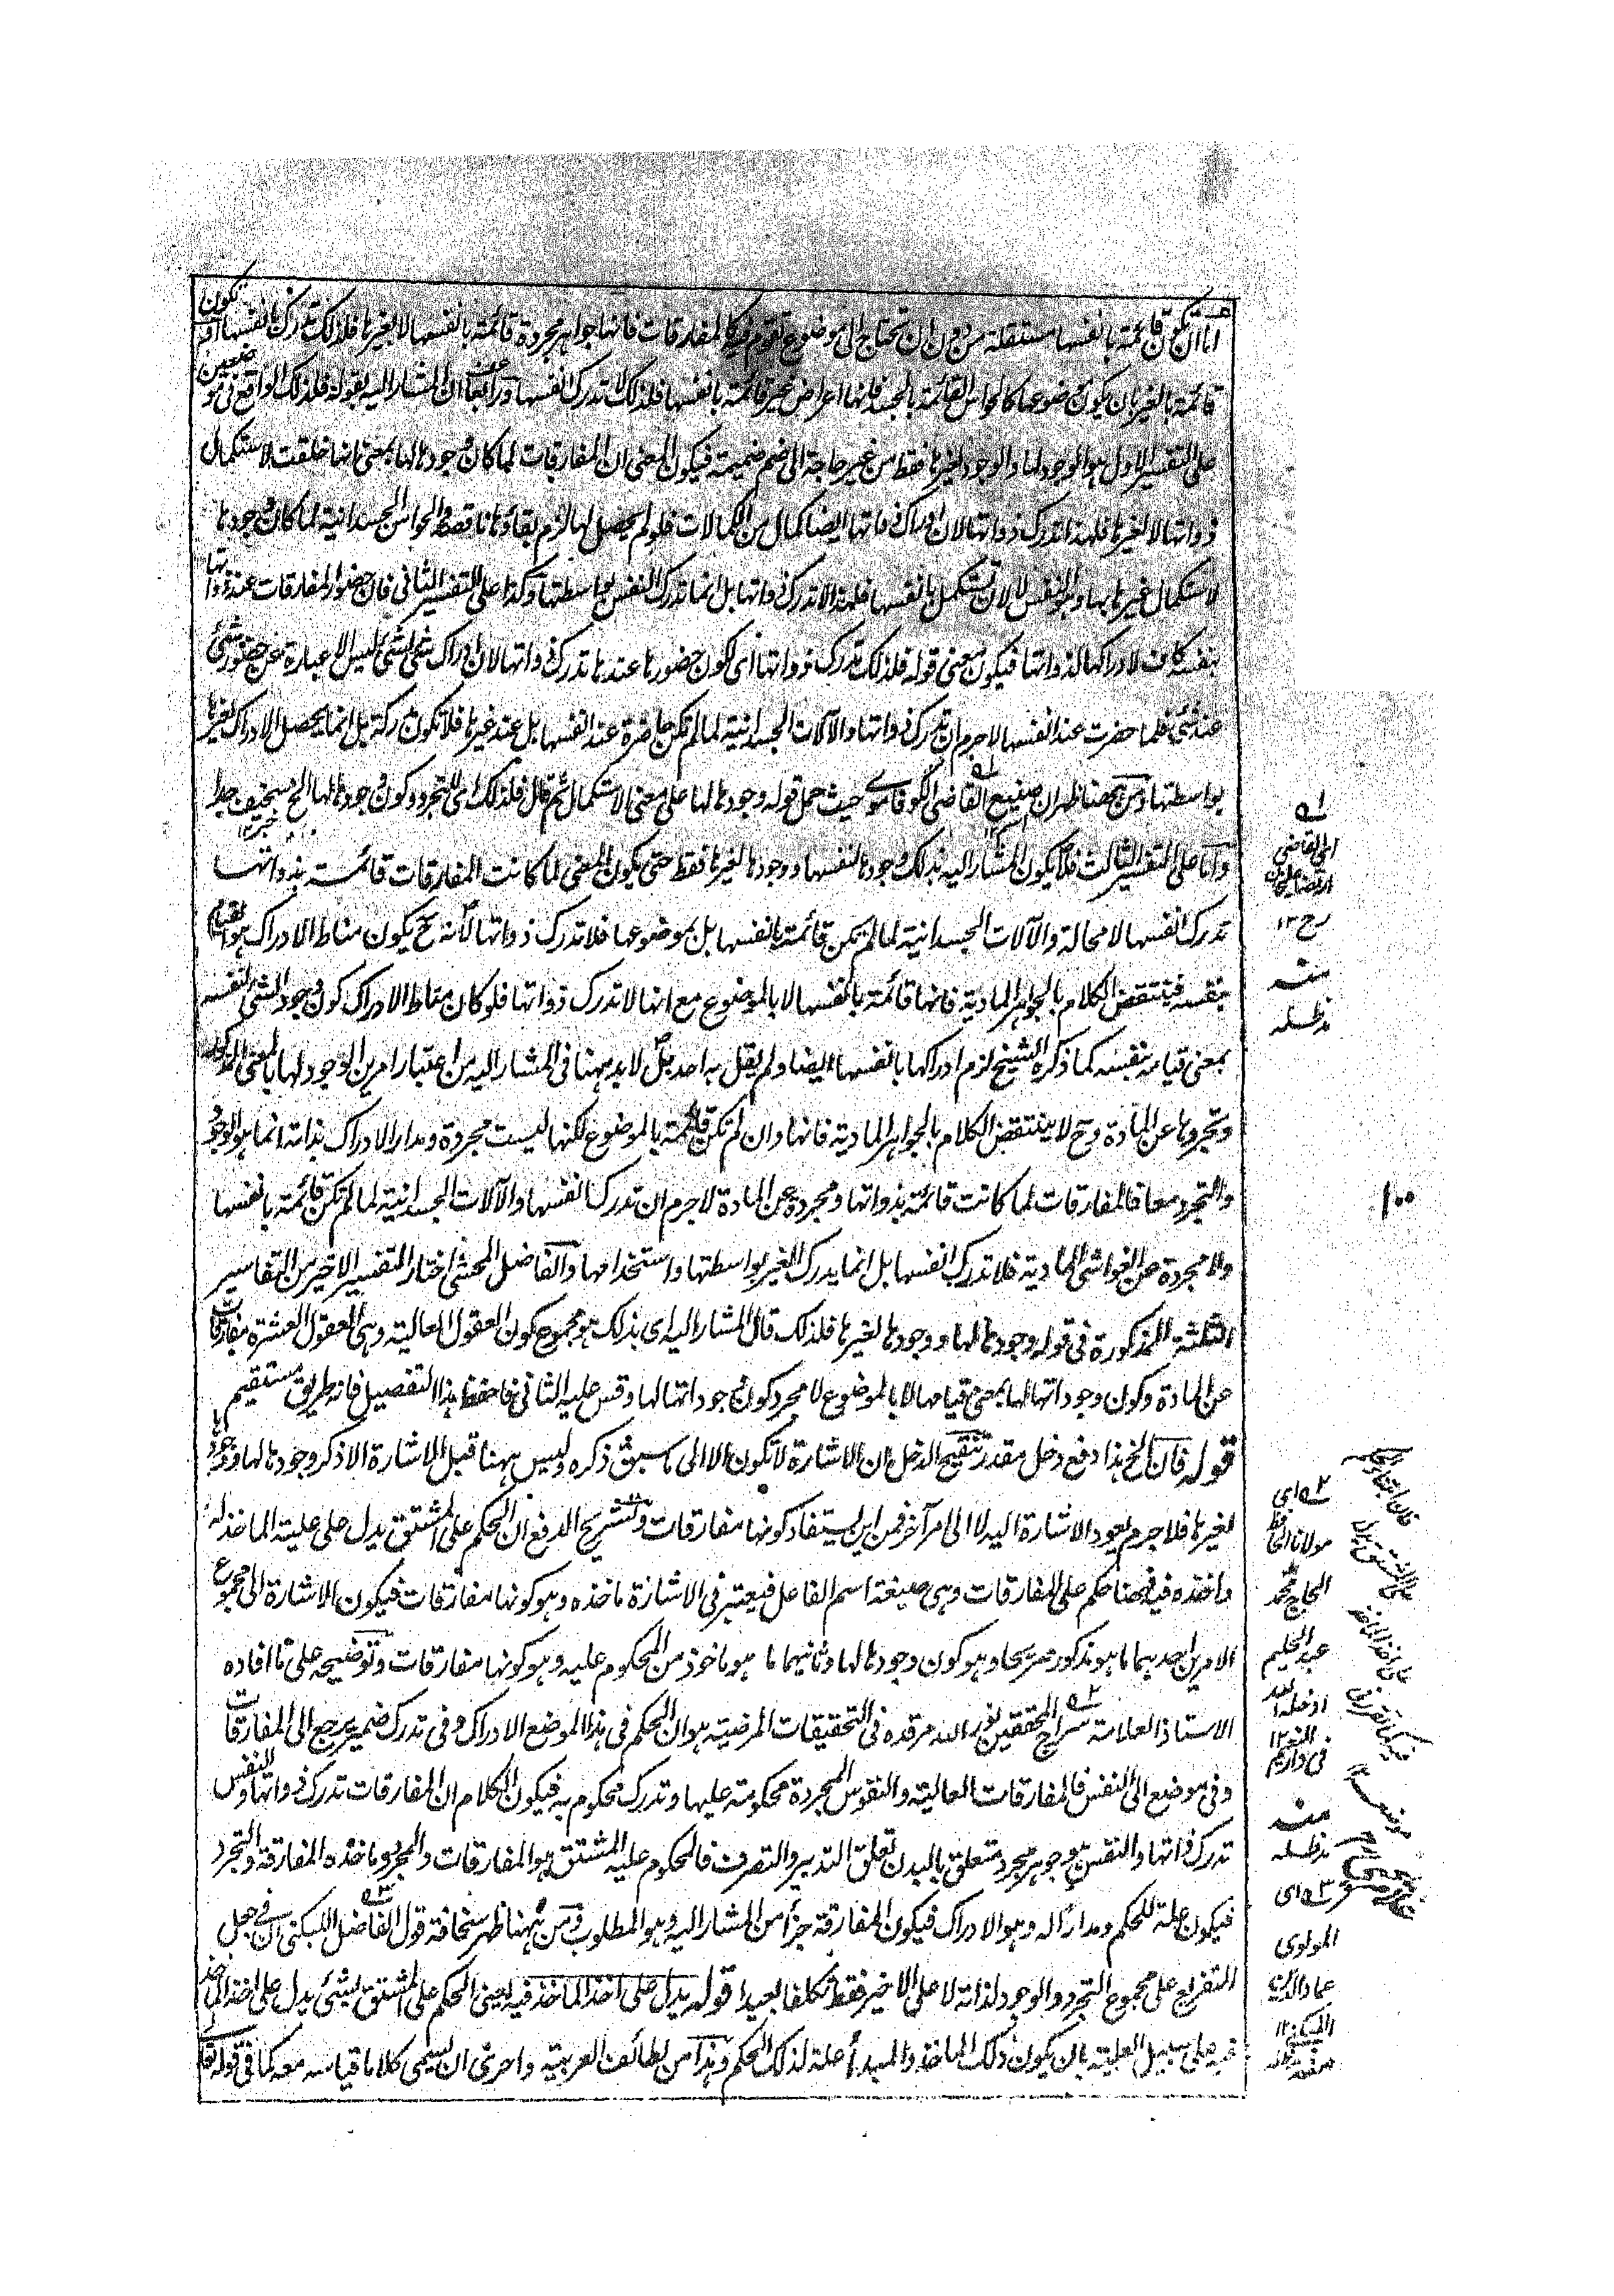 اما ان تكون قائمة بانفسها مستقلة من دون ان تحتاج الى موضوع تقوم به كالمفارقات فانها جواهر مجردة قائمة بانفسها لا بغيرها فلذلك تدرك انفسها او تكون
قائمة بالغير بان يكون موضوعها كالحواس القائمة بالجسد فانها اعراض غير قائمة بانفسها فلذلك لا تدرك انفسها ورابعا ان المشار اليه بقوله فلذلك الواقع فى موضعين
على التفسير الاول هو الوجود لها والوجود لغيرها فقط من غير حاجة الى ضم ضميمة فيكون المعنى ان المفارقات لما كان وجودها لها بمعنى انها خلقت لاستكمال
ذواتها لا لغيرها فلهذا تدرك ذواتها لان ادراك ذواتها ايضا كمال من الكمالات فلو لم يحصل لها لزم بقاؤها ناقصة والحواس الجسدانية لما كان وجودها
لاستكمال غيرها بها وهو النفس لا لان تستكمل بانفسها فلهذا لا تدرك ذواتها بل انما تدرك النفس بواسطتها وكذا على التفسير الثانى فان حضور المفارقات عند ذواتها
بنفسه كاف لادراكها لذواتها فيكون معنى قوله فلذلك تدرك ذواتها اى لكون حضورها عندها تدرك ذواتها لان ادراك شئ لشئ ليس الا عبارة عن حضور شئ
عند شئ فلما حضرت عند انفسها لا جرم ان تدرك ذواتها والآلات الجسدانية لما لم تكن حاضرة عند انفسها بل عند غيرها فلا تكون مدركة بل انما يحصل الادراك لغيرها
بواسطتها ومن ههنا ظهر ان صنيع القاضى الكوفاموى حيث حمل قوله وجودها لها على معنى الاستكمال ثم قال فلذلك اى للتجرد وكون وجودها لها الخ سخيف جدا
واما على التفسير الثالث فلا يكون المشار اليه بذلك وجودها لنفسها ووجودها لغيرها فقط حتى يكون المعنى لما كانت المفارقات قائمة بذواتها
تدرك انفسها لا محالة والآلات الجسدانية لما لم تكن قائمة بانفسها بل بموضوعها فلا تدرك ذواتها لانه ح يكون مناط الادراك هو القيام
بنفسه فينتقض الكلام بالجواهر المادية فانها قائمة بانفسها لا بالموضوع مع انها لا تدرك ذواتها فلو كان مناط الادراك كون وجود الشئ لنفسه
بمعنى قيامه بنفسه كما ذكره الشيخ لزم ادراكها بانفسها ايضا ولم يقل به احد بل لا بد ههنا فى المشار اليه من اعتبار امرين الوجود لها بالمعنى المذكور
وتجردها عن المادة وح لا ينتقض الكلام بالجواهر المادية فانها وان لم تكن قائمة بالموضوع لكنها ليست مجردة ومدار الادراك بذاته انما هو الوجود
والتجرد معا فالمفارقات لما كانت قائمة بذواتها ومجردة عن المادة لا جرم ان تدرك انفسها والآلات الجسدانية لما لم تكن قائمة بانفسها
ولا مجردة عن الغواشى المادية فلا تدرك انفسها بل انما يدرك الغير بواسطتها واستخدامها والفاضل المحشى اختار التفسير الاخير من التفاسير
الثلثة المذكورة فى قوله وجودها لها ووجودها لغيرها فلذلك قال المشار اليه اى بذلك هو مجموع كون العقول العالية وهى العقول العشرة مفارقات
عن المادة وكون وجوداتها لها بمعنى قيامها لا بالموضوع لا مجرد كون وجوداتها لها وقس عليه الثانى فاحفظ هذا التفصيل فانه طريق مستقيم
قوله فان الخ هذا دفع دخل مقدر تنقيح الدخل ان الاشارة لا تكون الا الى ما سبق ذكره وليس ههنا قبل الاشارة الا ذكر وجودها لها ووجودها
لغيرها فلا جرم يعود الاشارة اليه لا الى امر آخر فمن اين يستفاد كونها مفارقات وتشريح الدفع ان الحكم على المشتق يدل على علية الماخذ له
واخذه فيه فههنا حكم على المفارقات وهى صيغة اسم الفاعل فيعتبر فى الاشارة ماخذه وهو كونها مفارقات فيكون الاشارة الى مجموع
الامرين احدهما ما هو مذكور صريحا وهو كون وجودها لها وثانيهما ما هو ماخوذ من المحكوم عليه وهو كونها مفارقات وتوضيحه على ما افاده
الاستاذ العلامة سراج المحققين نور الله مرقده فى التحقيقات المرضية هو ان الحكم فى هذا الموضع الادراك وفى تدرك ضمير يرجع الى المفارقات
وفى موضع الى النفس فالمفارقات العالية والنفوس المجردة محكومة عليها وتدرك محكوم به فيكون الكلام ان المفارقات تدرك ذواتها والنفس
تدرك ذاتها والنفس هو جوهر مجرد متعلق بالبدن تعلق التدبير والتصرف فالمحكوم عليه المشتق هو المفارقات والمجرد وماخذه المفارقة والتجرد
فيكون علة للحكم ومدارا له وهو الادراك فيكون المفارقة جزأ من المشار اليه وهو المطلوب ومن ههنا ظهر سخافة قول الفاضل اللبكنى ان فى جعل
التفريع على مجموع التجرد والوجود لذاته لا على الاخير فقط تكلفا بعيدا قوله يدل على اخذ الماخذ فيه يعنى الحكم على المشتق بشئ يدل على اخذ الماخذ
فيه على سبيل العلية بان يكون ذلك الماخذ والمبدأ علة لذلك الحكم وهذا من لطائف العربية واحرى ان يسمى كلاما قياسه معه كما فى قوله تعالى
اى القاضى
ارتضا على خان
رح ١٢
منه
مد ظله
١٠٠
اى
مولانا الحافظ
الحاج محمد
عبد الحليم
ادخله الله
فى دار النعيم ١٢
منه
مد ظله
اى
المولوى
عماد الدين
اللبكنى ١٢
منه مد ظله